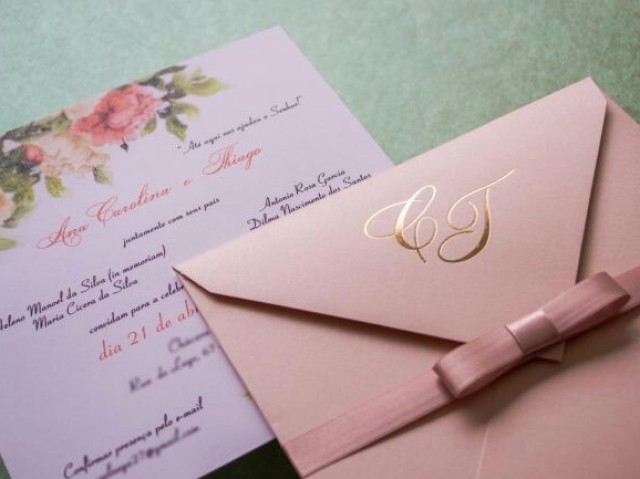 "Até aqui nos ajudou o Senhor!"
Ana Carolina e Thiago
juntamente com seus pais
Antonio Rosa Garcia
Dilma Nascimento dos Santos
Manoel da Silva (in memoriam)
Maria Cicera da Silva
convidam para a celeb
dia 21 de ab
Confirmar presença pelo e-mail
CT